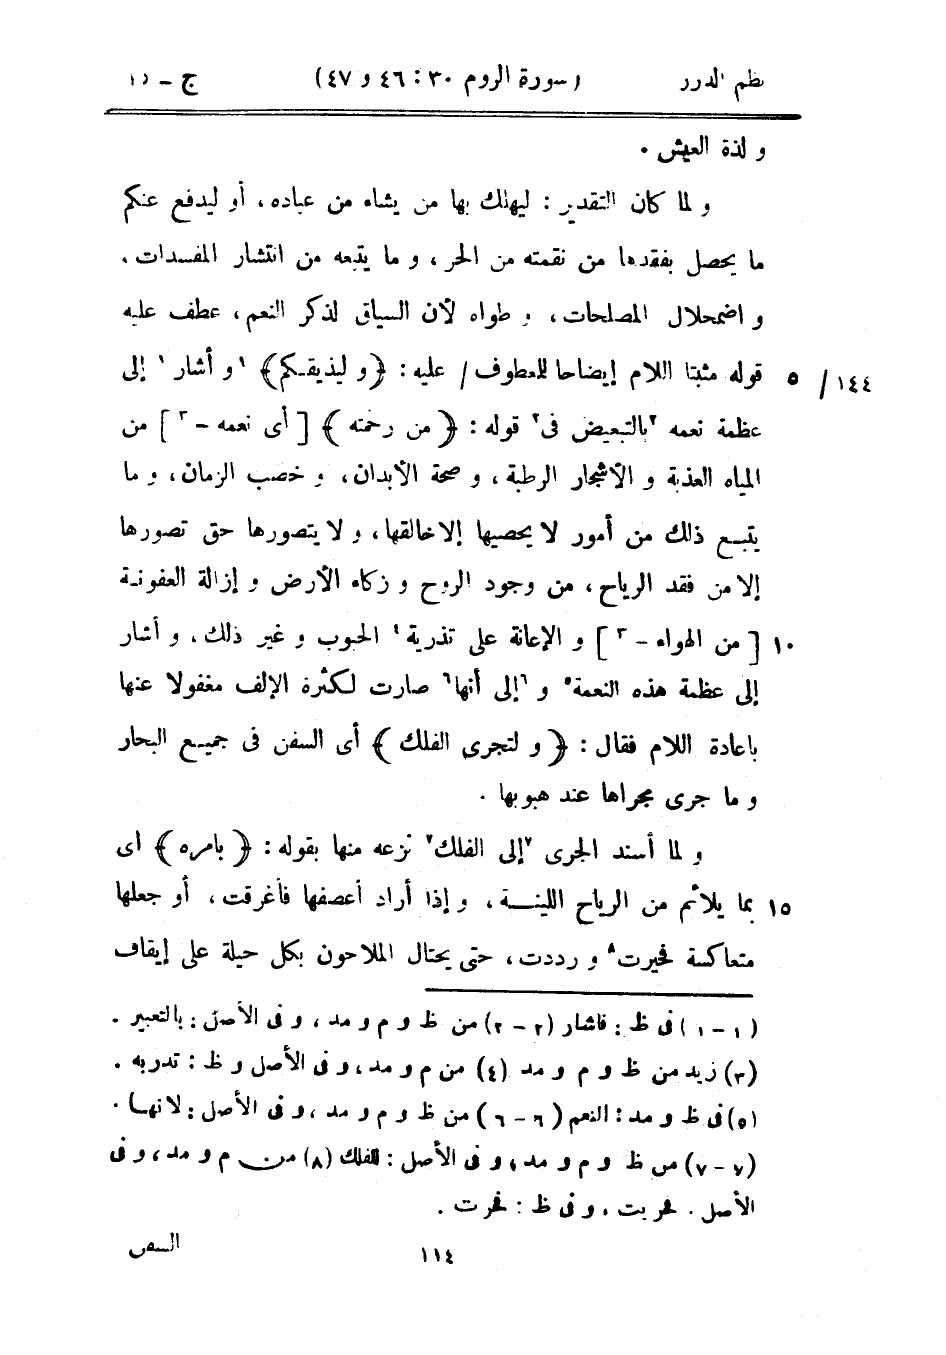 نظم الدرر (سورة الروم ٣٠ : ٤٦ و ٤٧) ج – ١٥
و لذة العيش .
و لما كان التقدير : ليهلك بها من يشاء من عباده ، أو ليدفع عنكم
ما يحصل بفقدها من نقمته من الحر ، و ما يتبعه من انتشار المفسدات ،
و اضمحلال المصلحات ، و طواه لأن السياق لذكر النعم ، عطف عليه
١٤٤ / ٥ قوله مثبتا اللام إيضاحا للعطوف / عليه : ﴿ و ليذيقكم ﴾ ١ و أشار ١ إلى
عظمة نعمه ٢ بالتبعيض فى ٢ قوله : ﴿ من رحمته ﴾ [ أى نعمه – ٣ ] من
المياه العذبة و الأشجار الرطبة ، و صحة الأبدان ، و خصب الزمان ، و ما
يتبع ذلك من أمور لا يحصيها إلا خالقها ، و لا يتصورها حق تصورها
إلا من فقد الرياح ، من وجود الروح و زكاء الأرض و إزالة العفونة
١٠ [ من الهواء – ٣ ] و الإعانة على تذرية ٤ الحبوب و غير ذلك ، و أشار
إلى عظمة هذه النعمة ٥ و ٦ إلى أنها ٦ صارت لكثرة الإلف مغفولا عنها
باعادة اللام فقال : ﴿ و لتجرى الفلك ﴾ أى السفن فى جميع البحار
و ما جرى مجراها عند هبوبها .
و لما أسند الجرى ٧ إلى الفلك ٧ نزعه منها بقوله : ﴿ بامره ﴾ اى
١٥ بما يلائم من الرياح اللينة ، و إذا أراد أعصفها فأغرقت ، أو جعلها
متعاكسة فحيرت ٨ و رددت ، حتى يحتال الملاحون بكل حيلة على إيقاف
(١ – ١) فى ظ : فاشار (٢ – ٢) من ظ و م و مد ، و فى الأصل : بالتعبير .
(٣) زيد من ظ و م و مد (٤) من م و مد ، و فى الأصل و ظ : تدربه .
(٥) فى ظ و مد : النعم (٦ – ٦) من ظ و م و مد ، و فى الأصل : لانها .
(٧ – ٧) من ظ و م و مد ، و فى الأصل : للفلك (٨) من م و مد ، و فى
الأصل . فحربت ، و فى ظ : فحرت .
١١٤